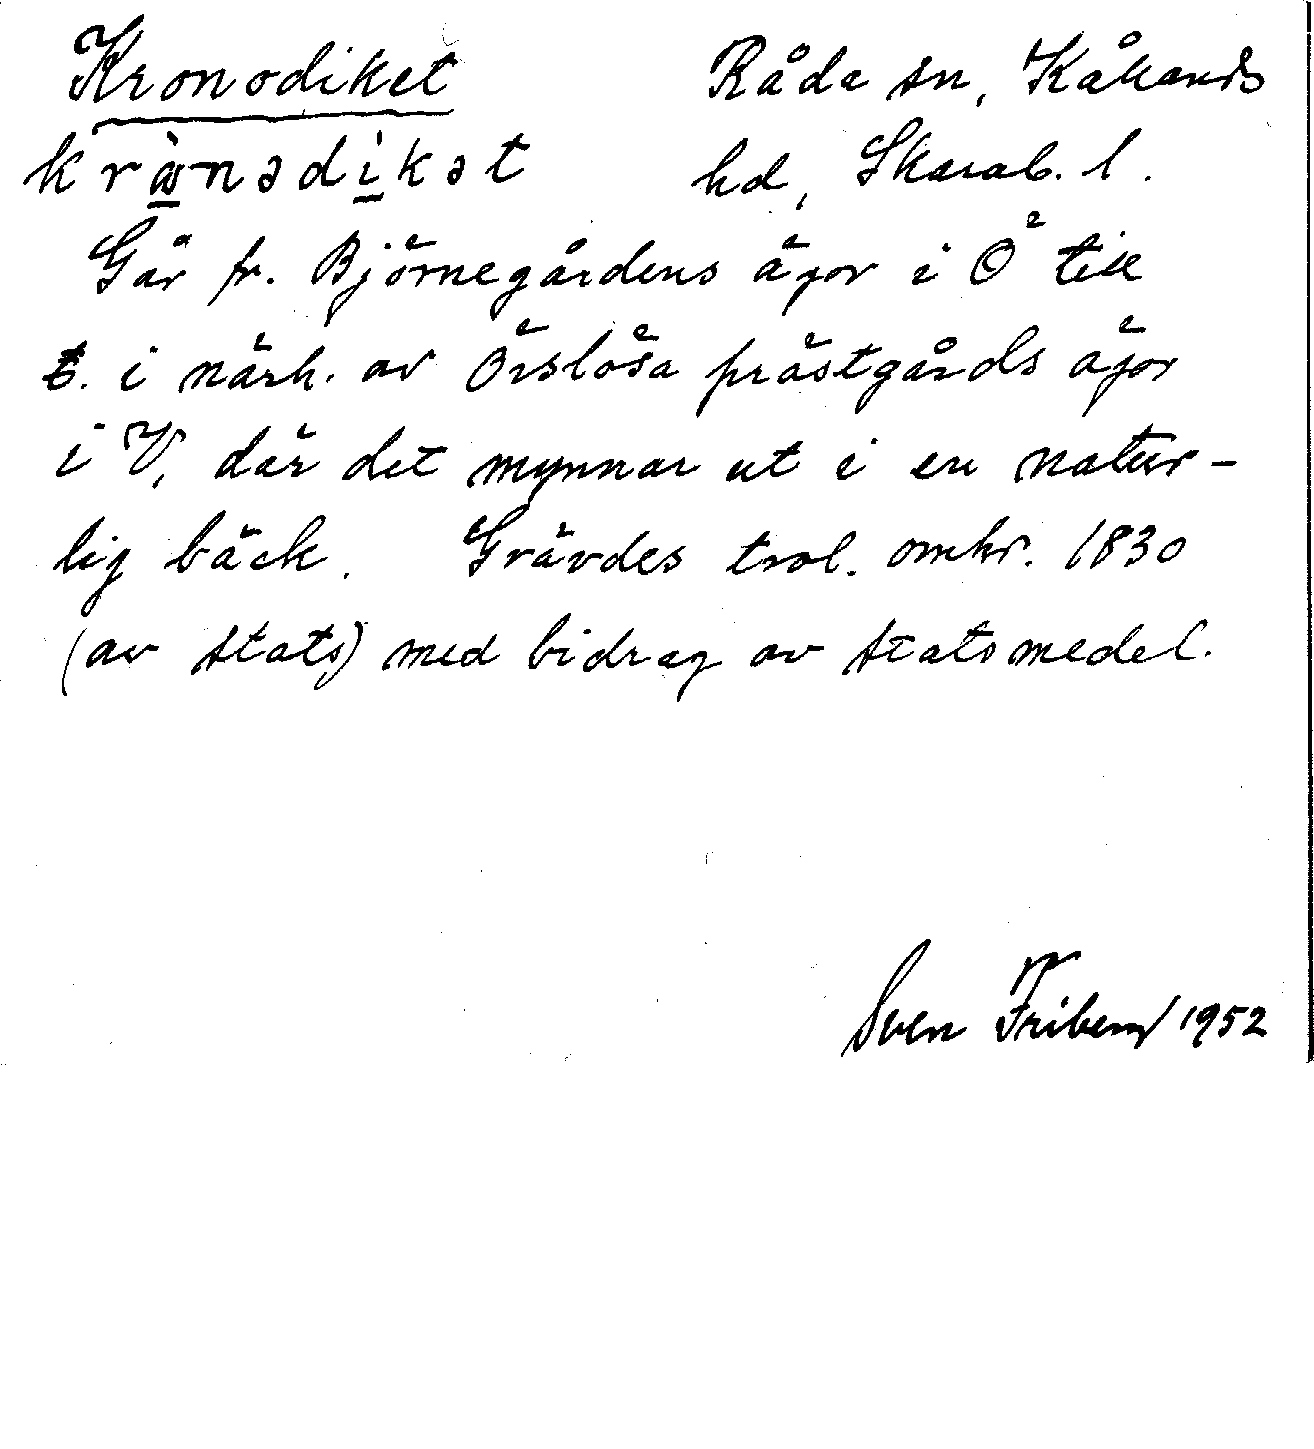 Kronodiket Råda sn, Kållands
krωnədikət hd, Skarab. l.
Går fr. Björnegårdens ägor i Ö till
t. i närh. av Örslösa prästgårds ägor
i V, där det mynnar ut i en natur-
lig bäck. Grävdes trol. omkr. 1830
(av stats) med bidrag av statsmedel.
Sven Friberg 1952